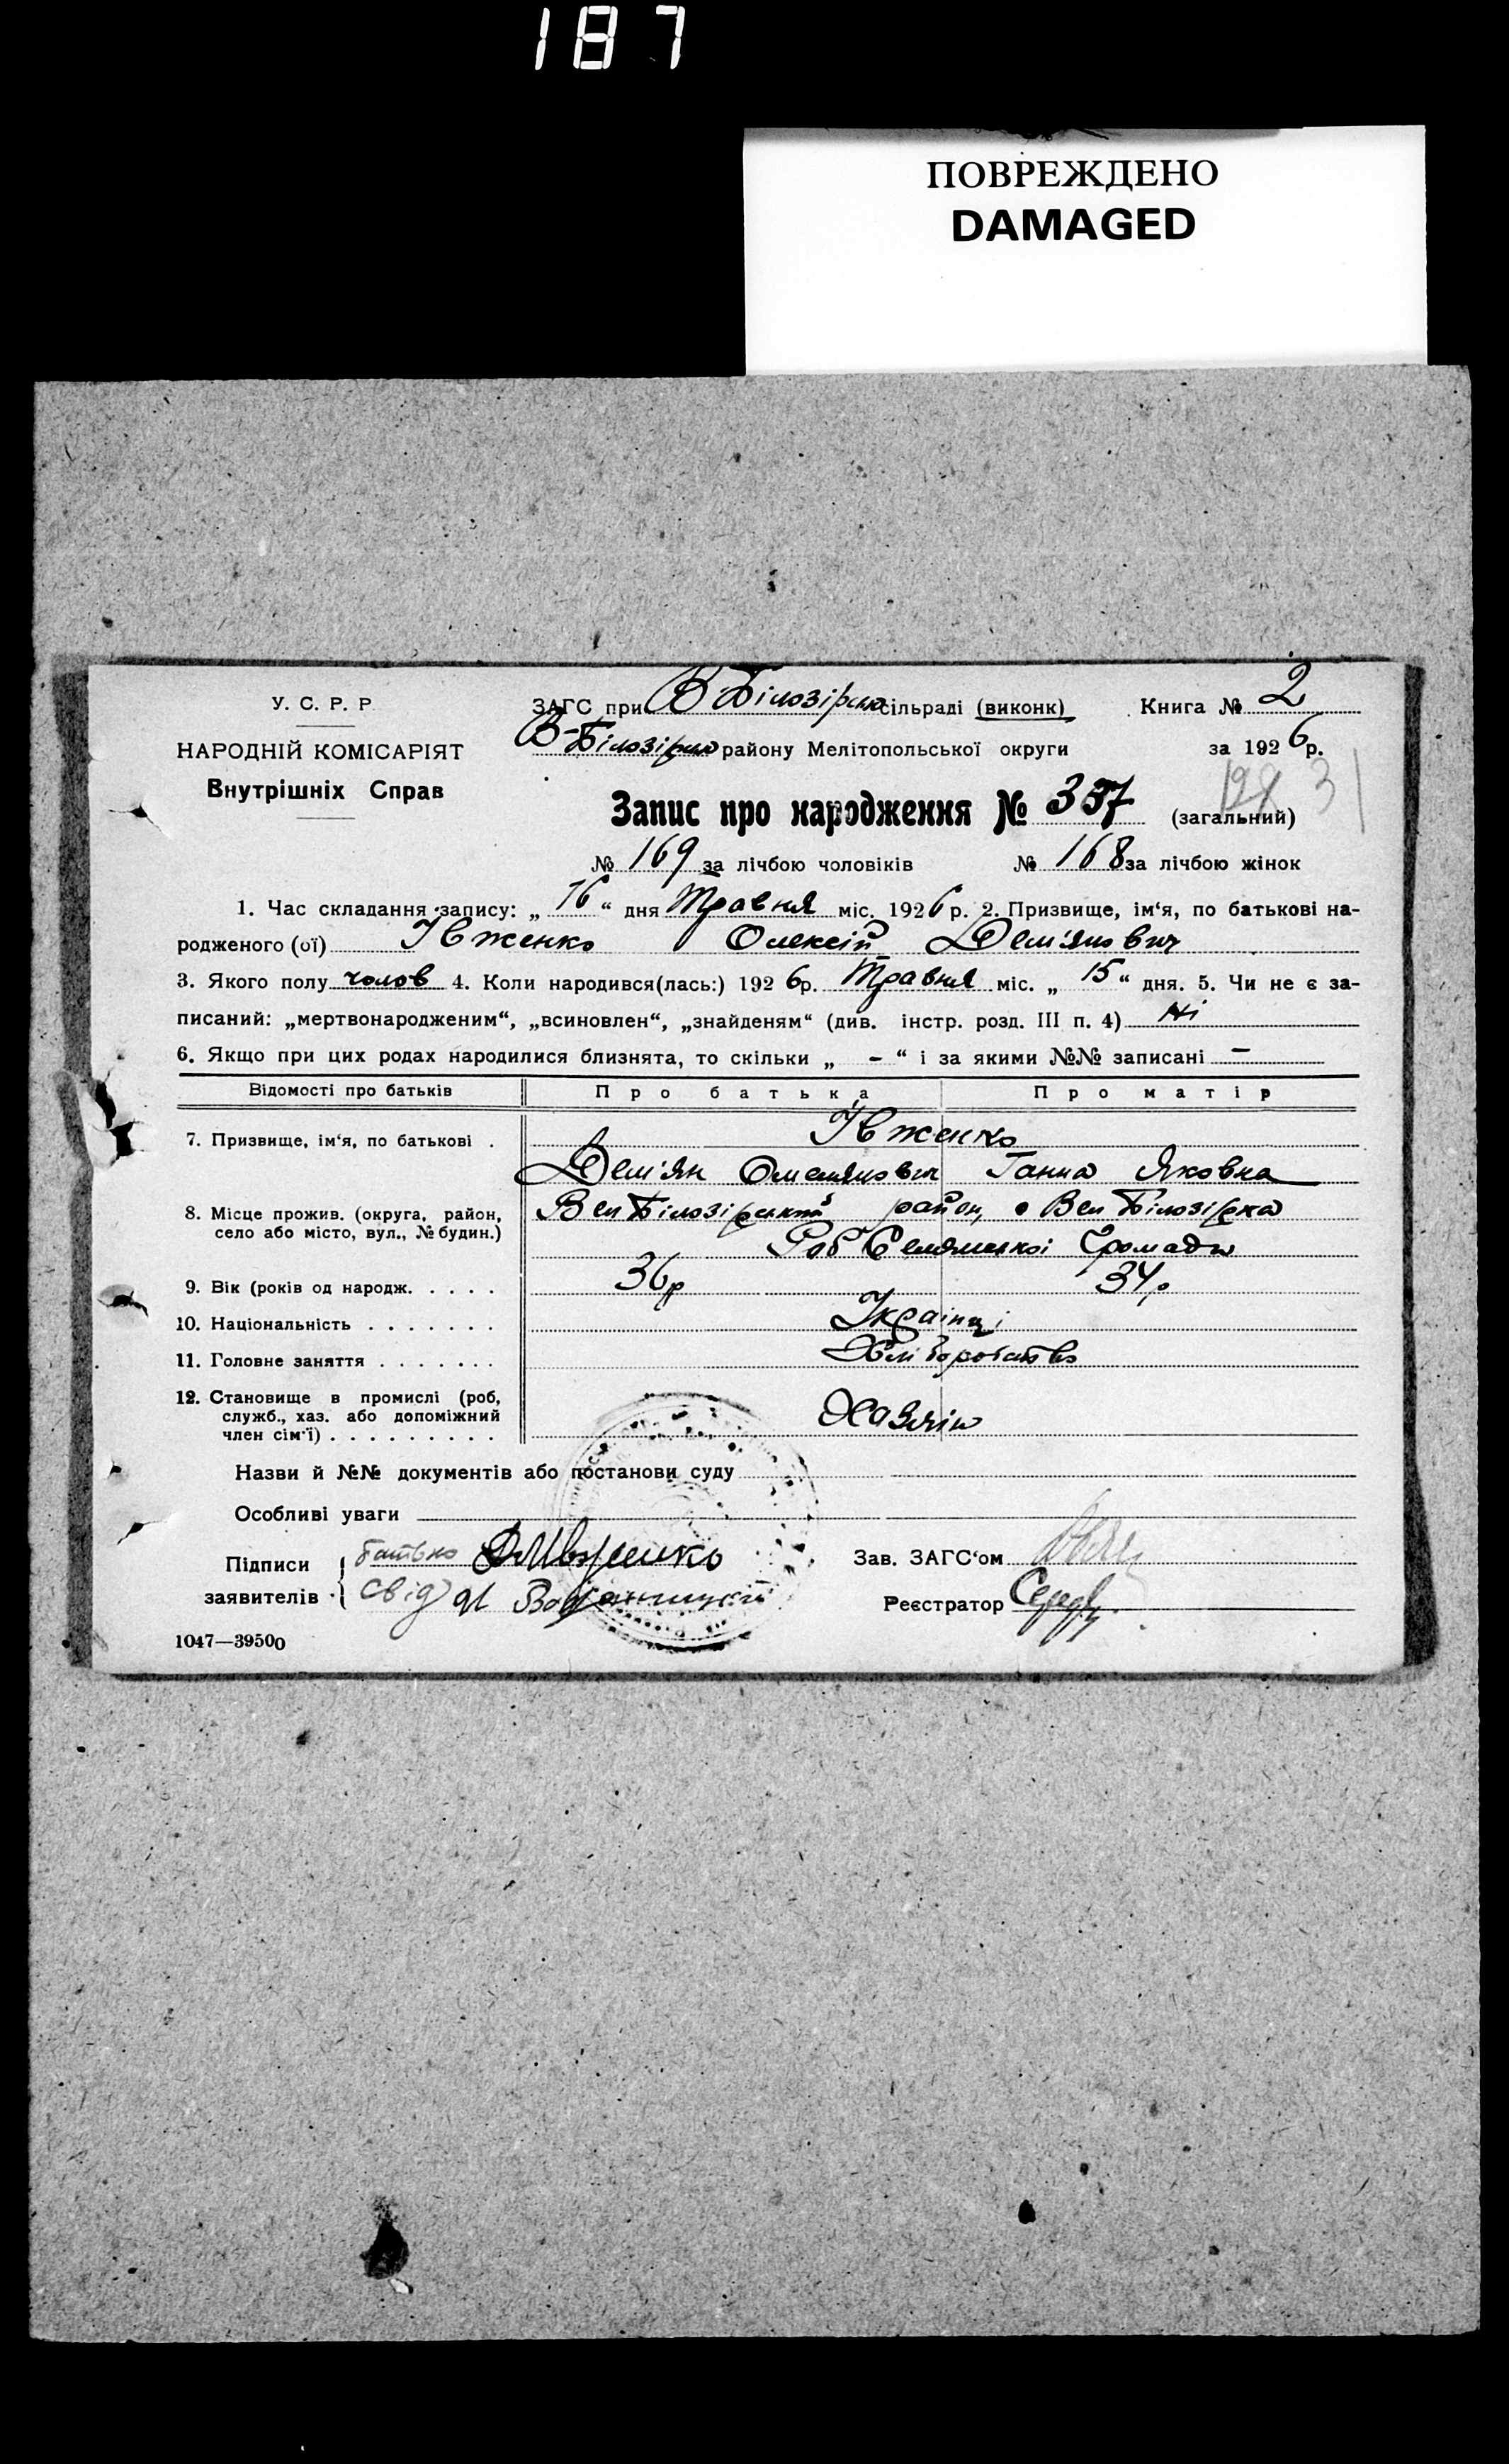 187
ПОВРЕЖДЕНО
DAMAGED
У. С. Р. Р.
НАРОДНІЙ КОМІСАРІЯТ
Внутрішніх Справ
ЗАГС при В Білозірська сільраді (виконк) Книга № 2
В-Білозірка району Мелітопольської округи за 1926 р.
128 31
Запис про народження № 337 (загальний)
№ 169 за лічбою чоловіків № 168 за лічбою жінок
1. Час складання запису: „16“ дня Травня міс. 1926 р. 2. Призвище, ім‘я, по батькові на-
родженого (ої) Івженко Олексій Дем'янович
3. Якого полу чолов 4. Коли народився(лась:) 1926р. Травня міс. „15“ дня. 5. Чи не є за-
писаний: „мертвонародженим“, „всиновлен“, „знайденям“ (див. інстр. розд. III п. 4) Ні
6. Якщо при цих родах народилися близнята, то скільки „ - “ і за якими №№ записані -
Відомості про батьків Про батька Про матір
7. Призвище, ім‘я, по батькові . Івженко
Дем'ян Омелянович Ганна Яковна
8. Місце прожив. (округа, район, Вел Білозірський район, Вел Білозірка
село або місто, вул., № будин.)
Роб Селянської Громади
9. Вік (років од народж. . . . . 36р 34р
10. Національність . . . . . . . Українці
11. Головне заняття . . . . . . . Хліборобство
12. Становище в промислі (роб,
служб., хаз. або допоміжний Хазяїн
член сім‘ї) . . . . . . . . .
Назви й №№ документів або постанови суду
Особливі уваги
Підписи батько Зав. ЗАГС‘ом
заявителів свід Реєстратор
1047—39500